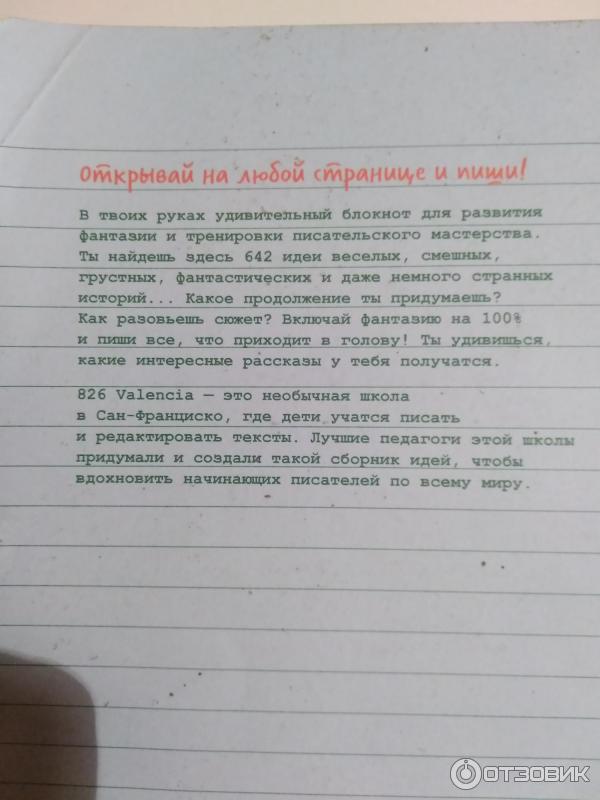 Открывай на любой странице и пиши!
В твоих руках удивительный блокнот для развития
фантазии и тренировки писательского мастерства.
Ты найдешь здесь 642 идеи веселых, смешных,
грустных, фантастических и даже немного странных
историй... Какое продолжение ты придумаешь?
Как разовьешь сюжет? Включай фантазию на 100%
и пиши все, что приходит в голову! Ты удивишься,
какие интересные рассказы у тебя получатся.
826 Valencia — это необычная школа
в Сан-Франциско, где дети учатся писать
и редактировать тексты. Лучшие педагоги этой школы
придумали и создали такой сборник идей, чтобы
вдохновить начинающих писателей по всему миру.
ОТЗОВИК